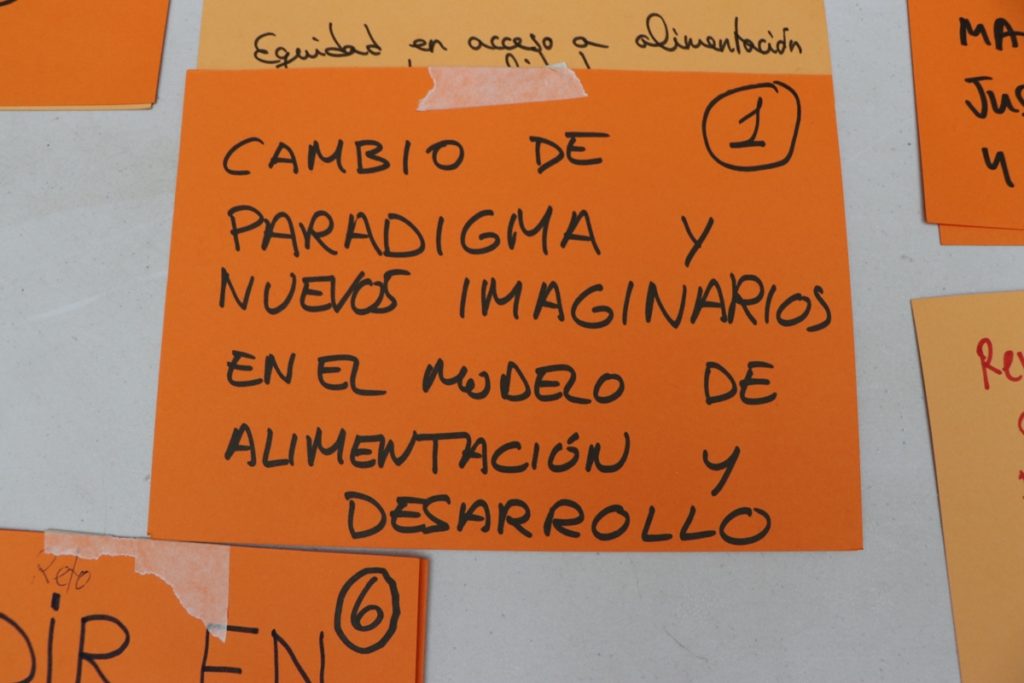 Equidad en acceso a alimentación
1
CAMBIO DE
PARADIGMA Y
NUEVOS IMAGINARIOS
EN EL MODELO DE
ALIMENTACIÓN Y
DESARROLLO
MA
Jus
y
Rev
Reto
6
DIR EN